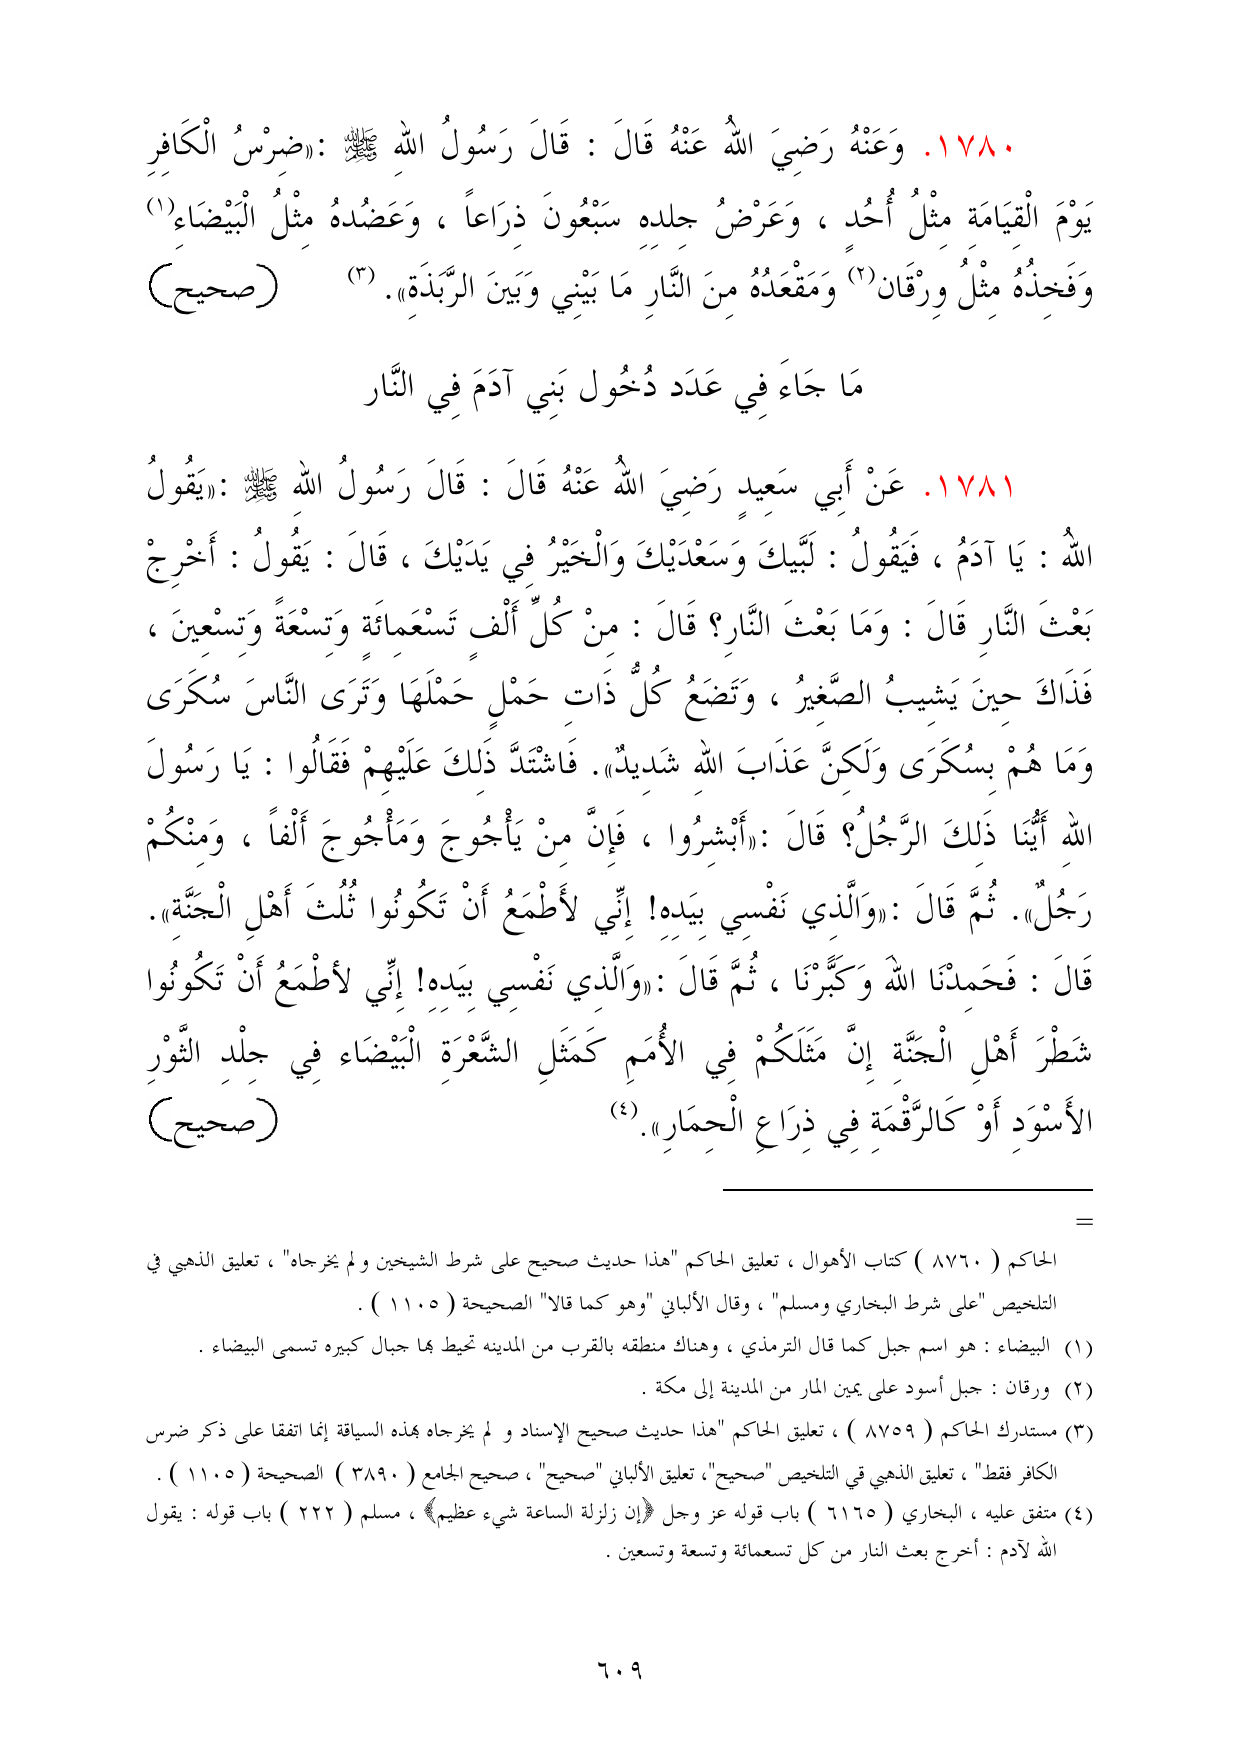 ١٧٨٠. وَعَنْهُ رَضِيَ اللهُ عَنْهُ قَالَ : قَالَ رَسُولُ اللهِ ﷺ :«ضِرْسُ الْكَافِرِ
يَوْمَ الْقِيَامَةِ مِثْلُ أُحُدٍ ، وَعَرْضُ جِلدِهِ سَبْعُونَ ذِرَاعاً ، وَعَضُدهُ مِثْلُ الْبَيْضَاءِ(١)
وَفَخِذُهُ مِثْلُ وِرْقَان(٢) وَمَقْعَدُهُ مِنَ النَّارِ مَا بَيْنِي وَبَينَ الرَّبَذَةِ». (٣) (صحيح)
مَا جَاءَ فِي عَدَد دُخُول بَنِي آدَمَ فِي النَّار
١٧٨١. عَنْ أَبِي سَعِيدٍ رَضِيَ اللهُ عَنْهُ قَالَ : قَالَ رَسُولُ اللهِ ﷺ :«يَقُولُ
اللهُ : يَا آدَمُ ، فَيَقُولُ : لَبَّيكَ وَسَعْدَيْكَ وَالْخَيْرُ فِي يَدَيْكَ ، قَالَ : يَقُولُ : أَخْرِجْ
بَعْثَ النَّارِ قَالَ : وَمَا بَعْثَ النَّارِ؟ قَالَ : مِنْ كُلِّ أَلْفٍ تَسْعَمِائَةٍ وَتِسْعَةً وَتِسْعِينَ ،
فَذَاكَ حِينَ يَشِيبُ الصَّغِيرُ ، وَتَضَعُ كُلُّ ذَاتِ حَمْلٍ حَمْلَهَا وَتَرَى النَّاسَ سُكَرَى
وَمَا هُمْ بِسُكَرَى وَلَكِنَّ عَذَابَ اللهِ شَدِيدٌ». فَاشْتَدَّ ذَلِكَ عَلَيْهِمْ فَقَالُوا : يَا رَسُولَ
اللهِ أَيُّنَا ذَلِكَ الرَّجُلُ؟ قَالَ :«أَبْشِرُوا ، فَإِنَّ مِنْ يَأْجُوجَ وَمَأْجُوجَ أَلْفاً ، وَمِنْكُمْ
رَجُلٌ». ثُمَّ قَالَ :«وَالَّذِي نَفْسِي بِيَدِهِ! إِنِّي لأَطْمَعُ أَنْ تَكُونُوا ثُلُثَ أَهْلِ الْجَنَّةِ».
قَالَ : فَحَمِدْنَا اللهَ وَكَبَّرْنَا ، ثُمَّ قَالَ :«وَالَّذِي نَفْسِي بِيَدِهِ! إِنِّي لأطْمَعُ أَنْ تَكُونُوا
شَطْرَ أَهْلِ الْجَنَّةِ إِنَّ مَثَلَكُمْ فِي الأُمَمِ كَمَثَلِ الشَّعْرَةِ الْبَيْضَاءِ فِي جِلْدِ الثَّوْرِ
الأَسْوَدِ أَوْ كَالرَّقْمَةِ فِي ذِرَاعِ الْحِمَارِ».(٤) (صحيح)
=
الحاكم ( ٨٧٦٠ ) كتاب الأهوال ، تعليق الحاكم "هذا حديث صحيح على شرط الشيخين و لم يخرجاه" ، تعليق الذهبي في
التلخيص "على شرط البخاري ومسلم" ، وقال الألباني "وهو كما قالا" الصحيحة ( ١١٠٥ ) .
(١) البيضاء : هو اسم جبل كما قال الترمذي ، وهناك منطقه بالقرب من المدينه تحيط بها جبال كبيره تسمى البيضاء .
(٢) ورقان : جبل أسود على يمين المار من المدينة إلى مكة .
(٣) مستدرك الحاكم ( ٨٧٥٩ ) ، تعليق الحاكم "هذا حديث صحيح الإسناد و لم يخرجاه بهذه السياقة إنما اتفقا على ذكر ضرس
الكافر فقط" ، تعليق الذهبي قي التلخيص "صحيح"، تعليق الألباني "صحيح" ، صحيح الجامع ( ٣٨٩٠ ) الصحيحة ( ١١٠٥ ) .
(٤) متفق عليه ، البخاري ( ٦١٦٥ ) باب قوله عز وجل ﴿إن زلزلة الساعة شيء عظيم﴾ ، مسلم ( ٢٢٢ ) باب قوله : يقول
الله لآدم : أخرج بعث النار من كل تسعمائة وتسعة وتسعين .
٦٠٩